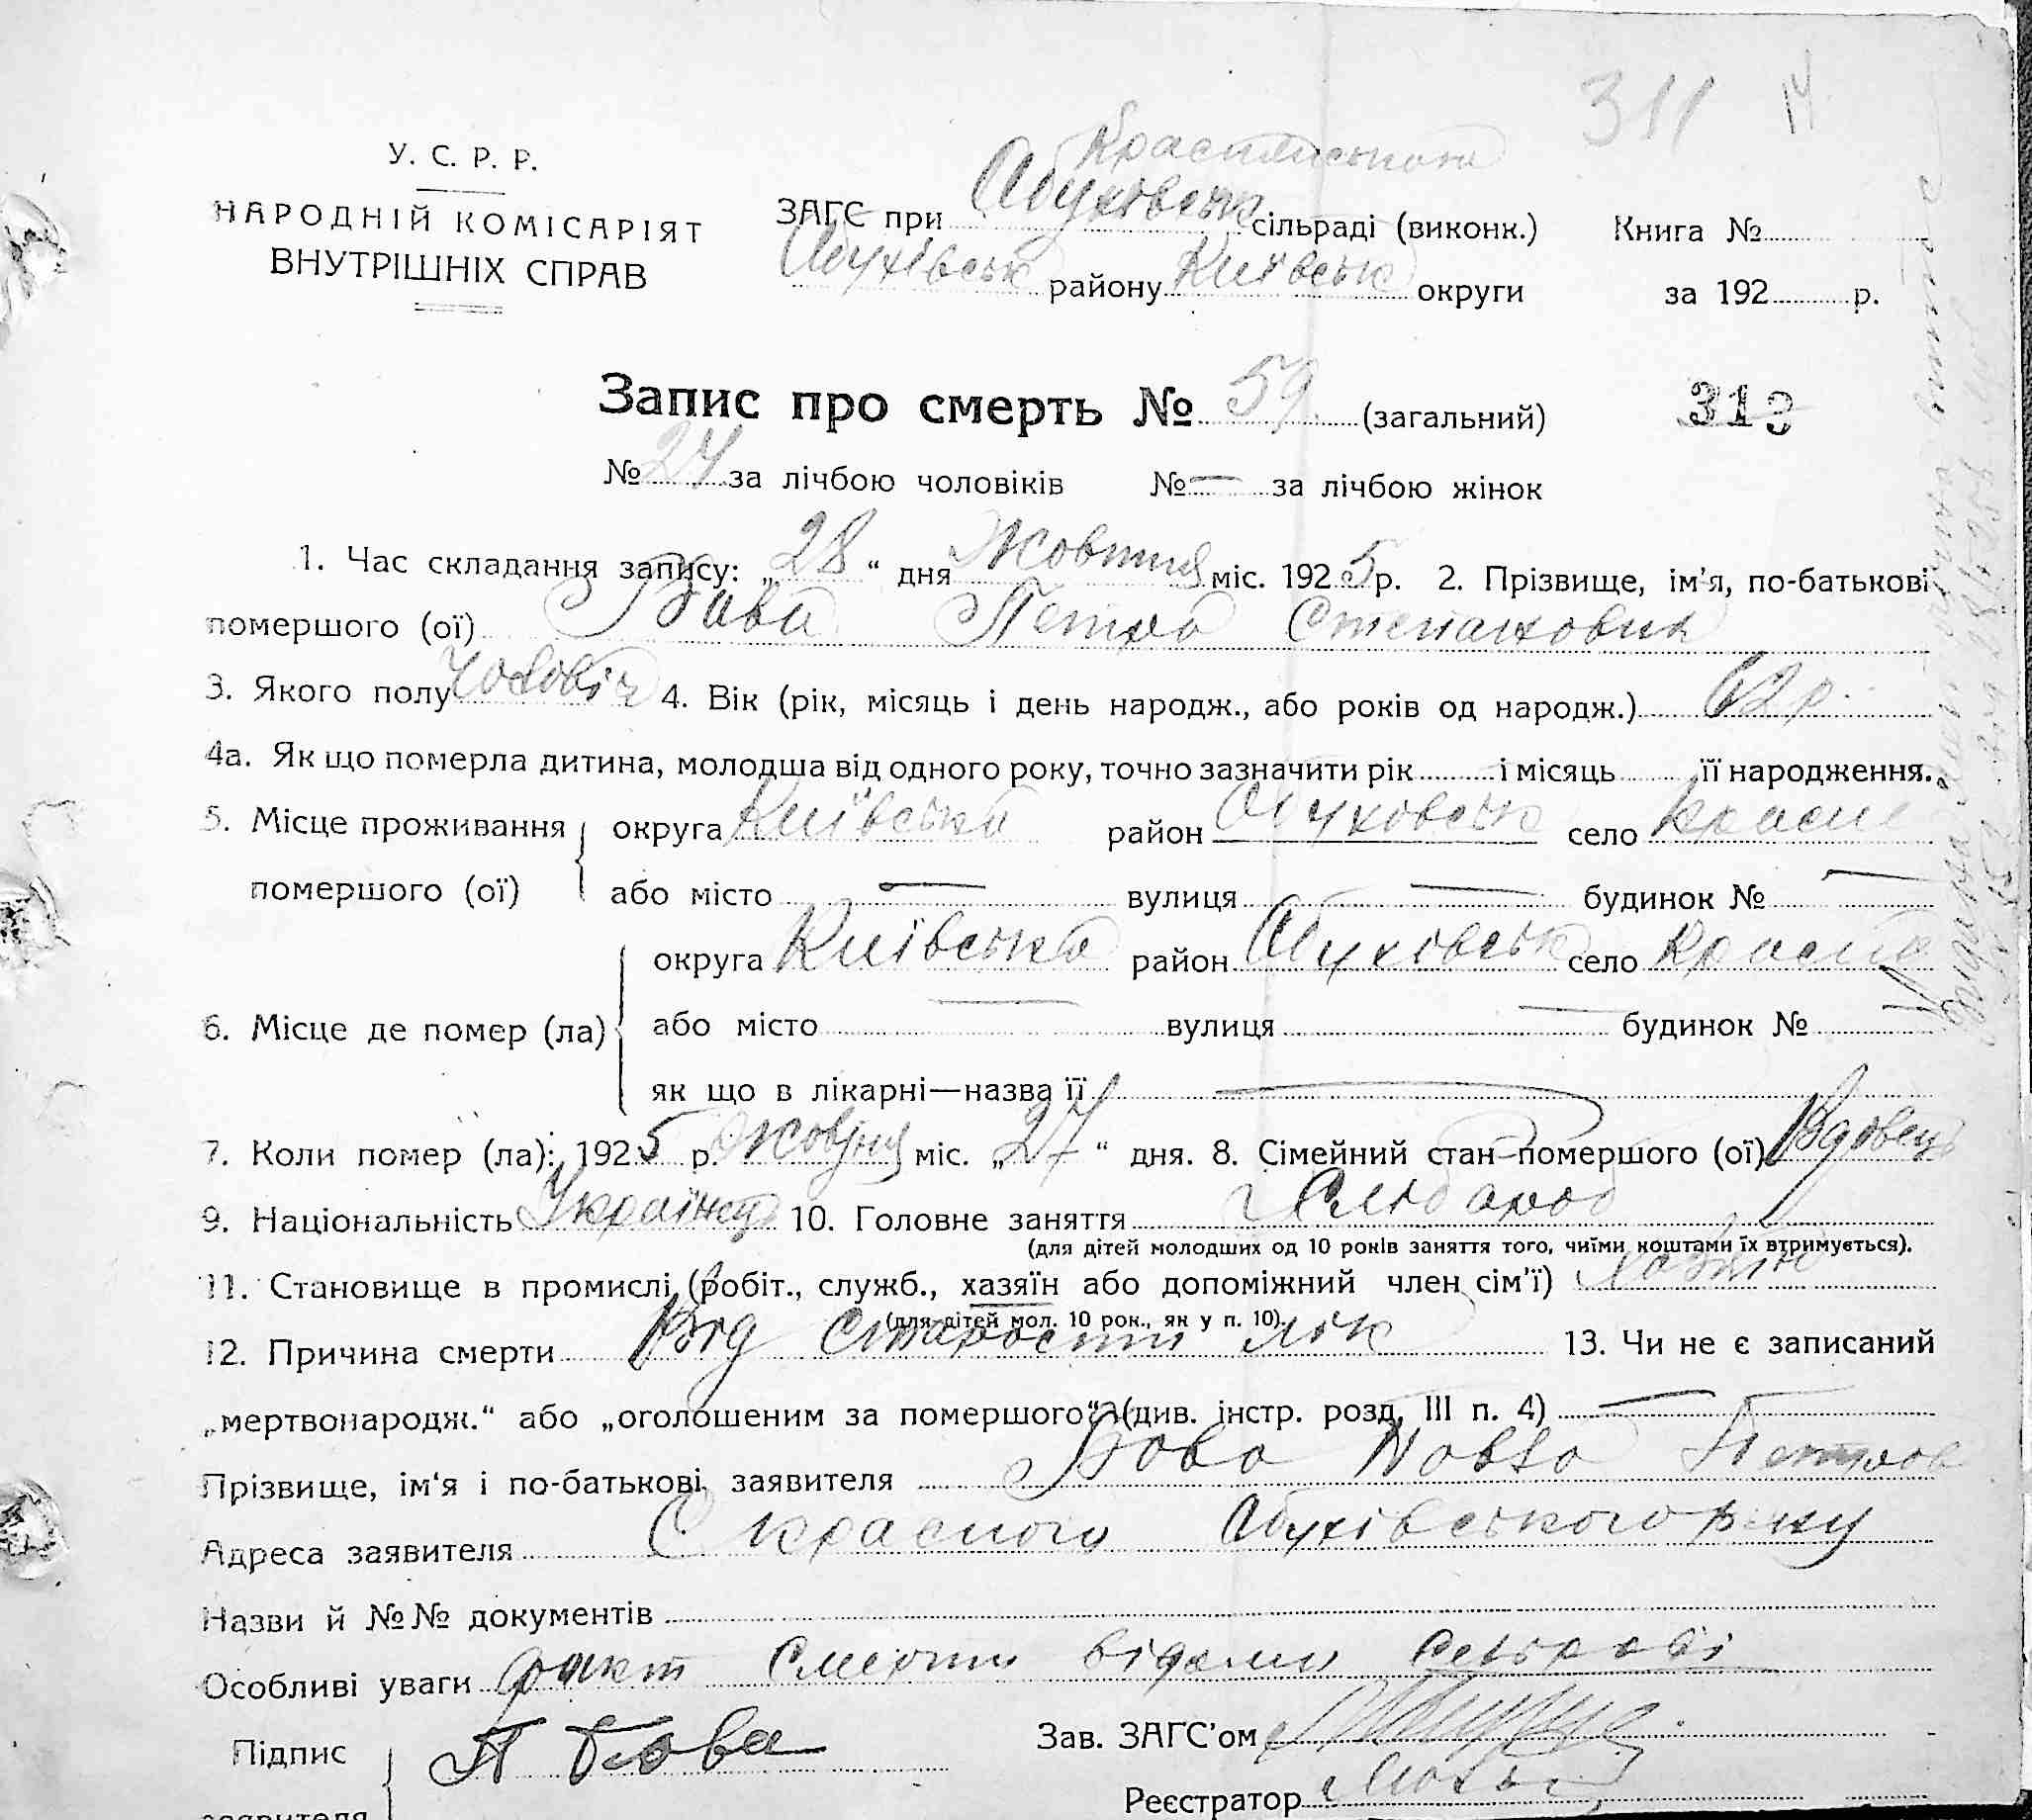 311 14
У. С. Р. Р.
НАРОДНІЙ КОМІСАРІЯТ
ВНУТРІШНІХ СПРАВ
ЗАГС при Абухівськ сільраді (виконк.)
Абухівськ району Київськ округи
Книга №
за 192 р.
Запис про смерть № 59 (загальний)
313
№ 24 за лічбою чоловіків № — за лічбою жінок
1. Час складання запису: „28“ дня Жовтня міс. 1925 р. 2. Прізвище, ім'я, по-батькові
помершого (ої) Бава Петро Степанович
3. Якого полу Чоловіч 4. Вік (рік, місяць і день народж., або років од народж.) 62 р.
4а. Як що померла дитина, молодша від одного року, точно зазначити рік і місяць її народження.
5. Місце проживання помершого (ої) округа Київська район Абуховськ село Красне
або місто — вулиця — будинок № —
6. Місце де помер (ла) округа Київська район Абухівськ село Красне
або місто — вулиця — будинок № —
як що в лікарні—назва її —
7. Коли помер (ла): 1925 р. Жовтня міс. „27“ дня. 8. Сімейний стан помершого (ої) Вдовець
9. Національність Українець 10. Головне заняття Хлібороб
(для дітей молодших од 10 років заняття того, чиїми коштами їх втримується).
11. Становище в промислі (робіт., служб., хазяїн або допоміжний член сім'ї) хазяїн
(для дітей мол. 10 рок., як у п. 10).
12. Причина смерти Від старости лік 13. Чи не є записаний
„мертвонародж.“ або „оголошеним за помершого“? (див. інстр. розд. III п. 4) —
Прізвище, ім'я і по-батькові заявителя Бова Павло Петров
Адреса заявителя С Красного Абухівського р-ну
Назви й №№ документів
Особливі уваги факт смерти відоми сельраді
Підпис
заявителя
П Бова
Зав. ЗАГС'ом
Реєстратор